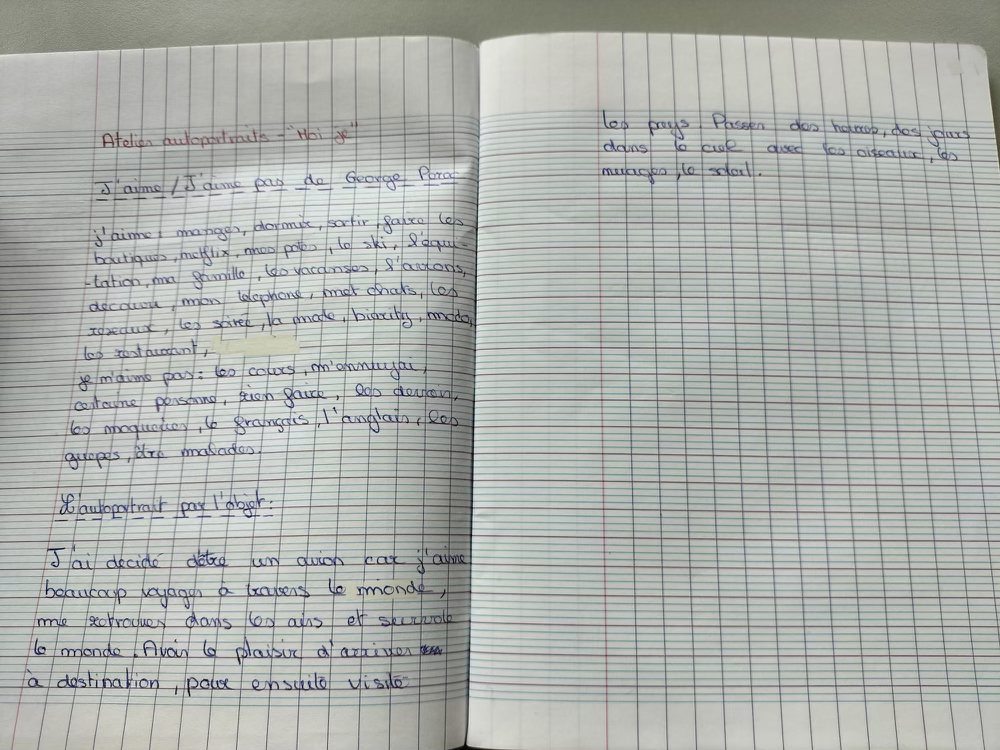 Atelier autoportraits - "Moi je"
J'aime / J'aime pas de George Perec
j'aime: manger, dormir, sortir, faire les
boutiques, netflix, mes potes, le ski, l'équi-
-tation, ma famille, les vacanses, l'avions,
décourir, mon telephone, met chats, les
reseaux, les soirée, la mode, biarity, mcdo,
les restaurant,
je n'aime pas: les cours, m'ennuyai,
certaine personne, rien faire, les devoir,
les moqueries, le français, l'anglais, les
guepes, être malades.
L'autoportrait par l'objet:
J'ai décidé d'être un avion car j'aime
beaucoup voyager à travers le monde,
me retrouver dans les airs et survole
le monde. Avoir le plaisir d'arriver
à destination, pour ensuite visité
les pays. Passer des heures, des jours
dans le ciel avec les oiseaux, les
nuages, le soleil.